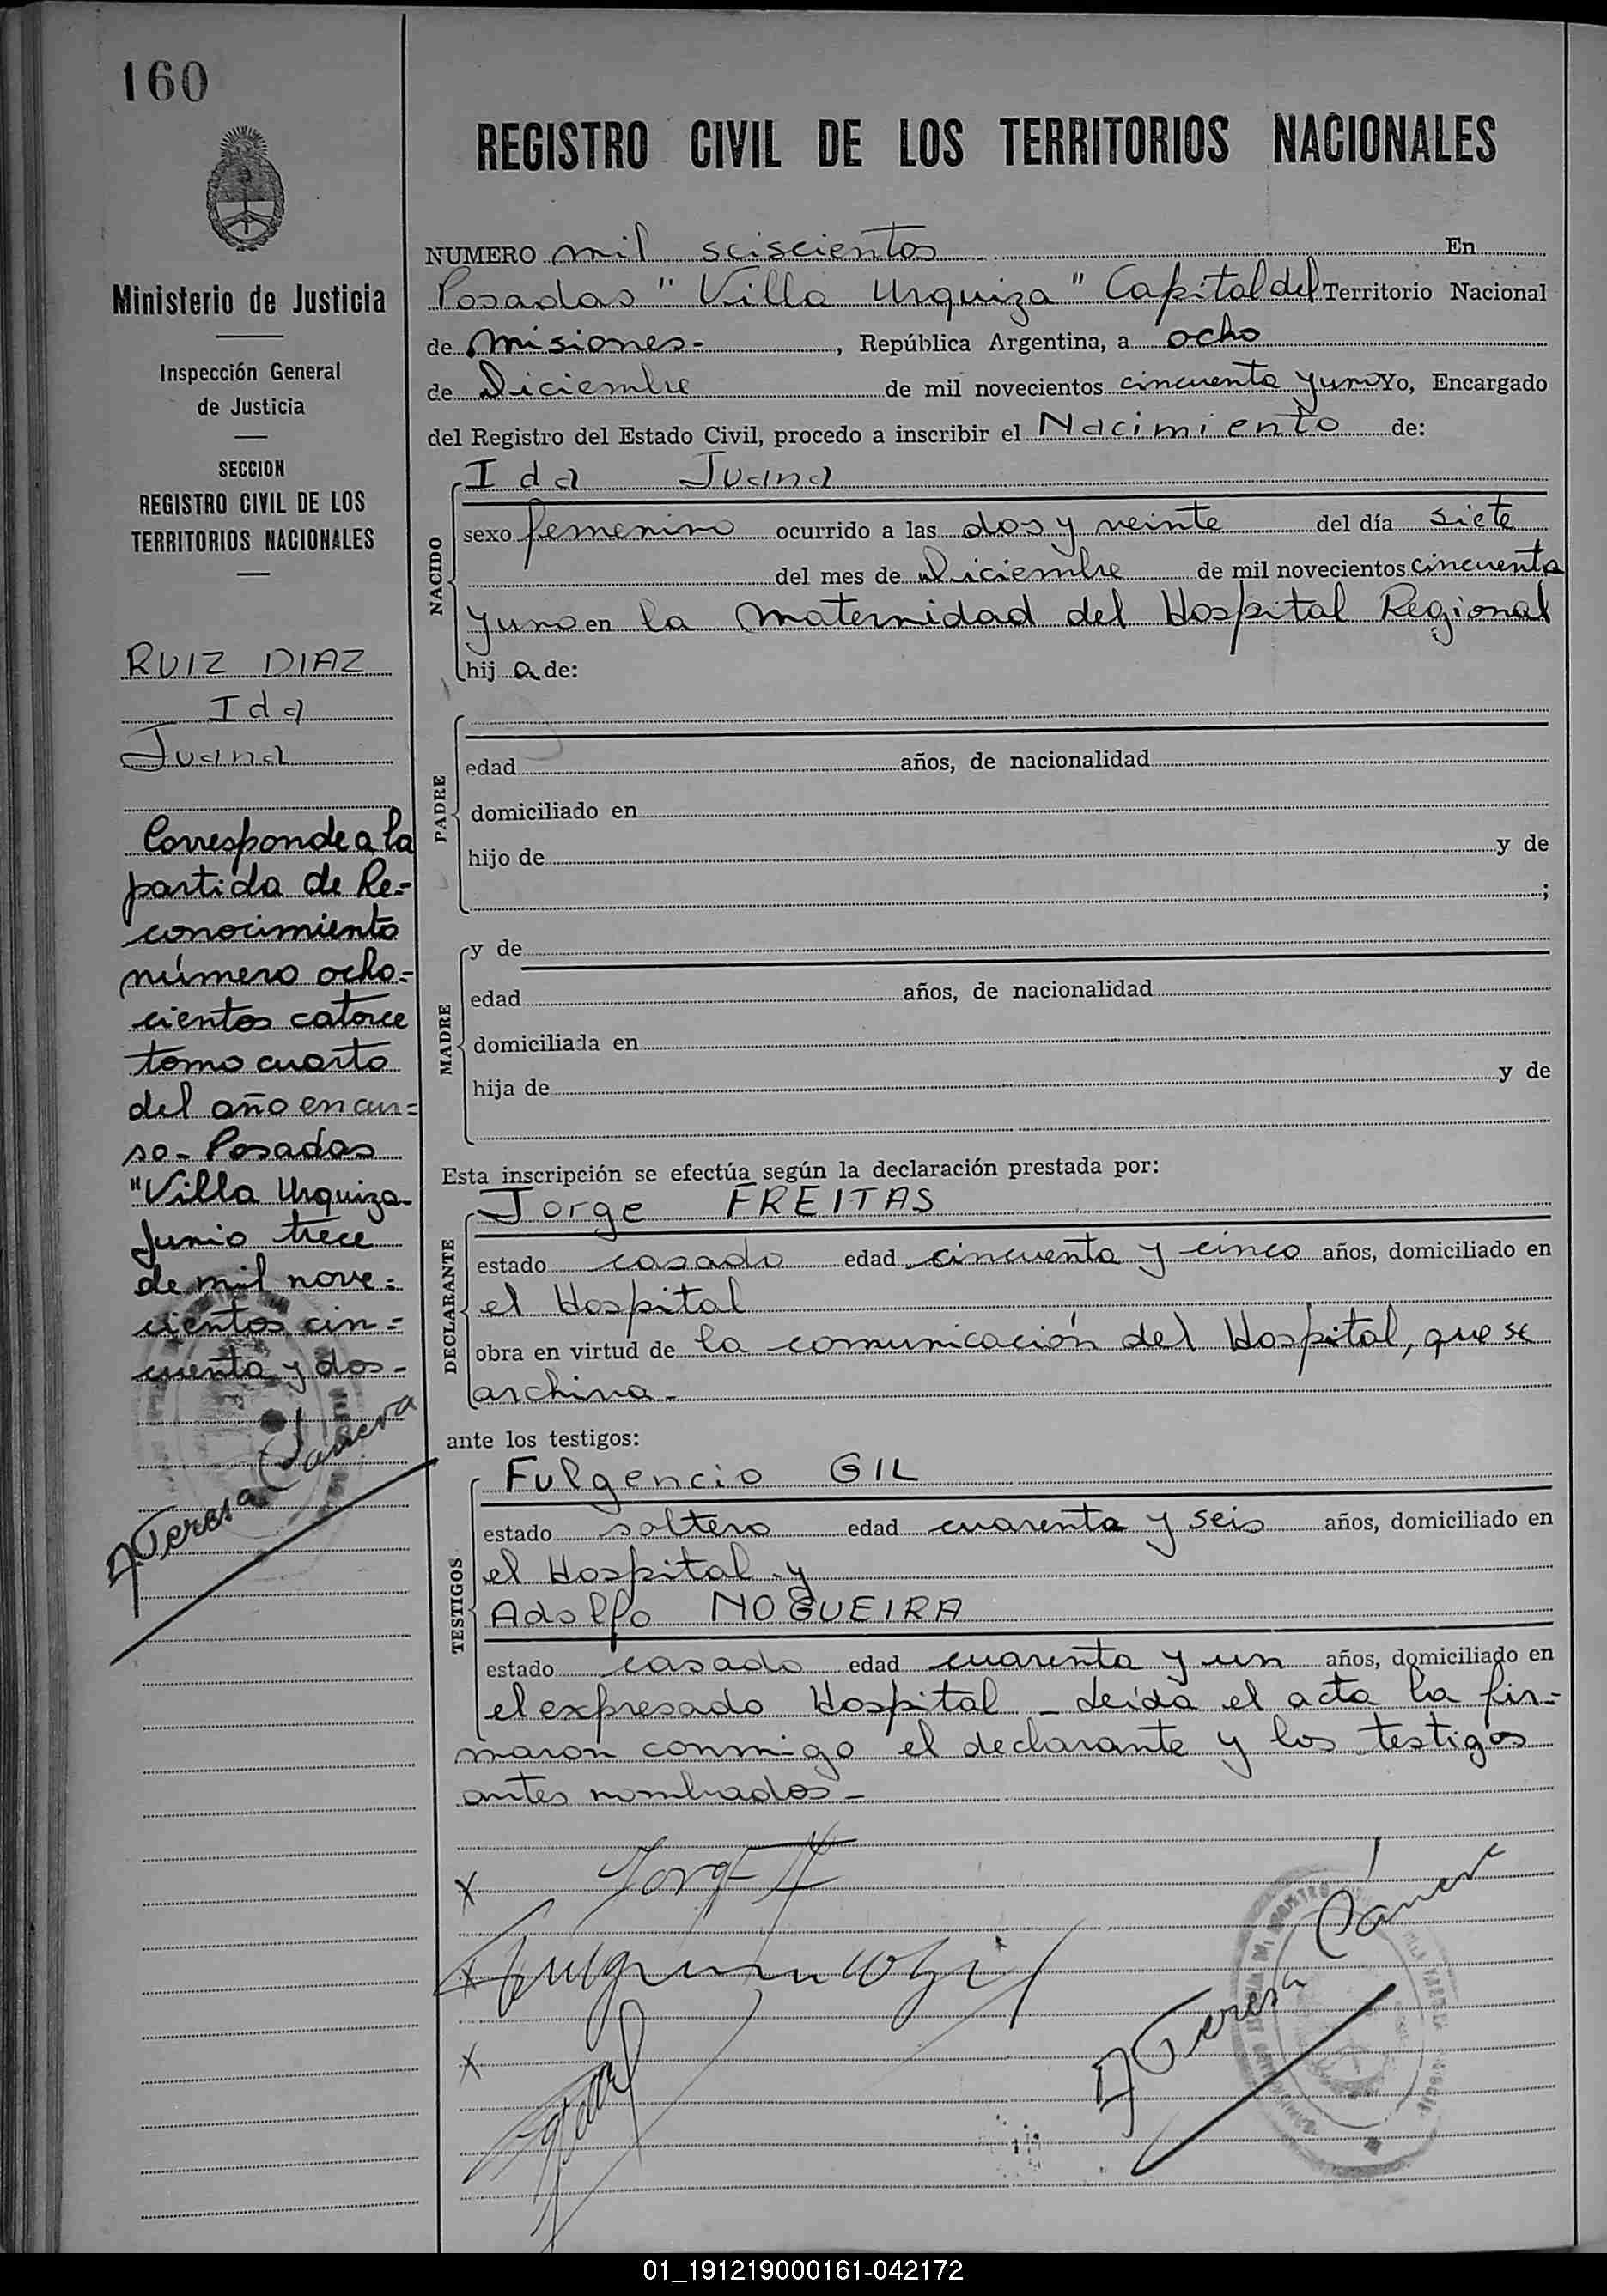 160
Ministerio de Justicia
Inspección General
de Justicia
SECCION
REGISTRO CIVIL DE LOS
TERRITORIOS NACIONALES
RUIZ DIAZ
Ida
Juana
Corresponde a la
partida de Re-
conocimiento
número ocho-
cientos catorce
tomo cuarto
del año en cur-
so - Posadas
"Villa Urquiza
Junio trece
de mil nove-
cientos cin-
cuenta y dos-
A Teresa
REGISTRO CIVIL DE LOS TERRITORIOS NACIONALES
NUMERO mil sciscientos En
Posadas "Villa Urquiza" Capital del Territorio Nacional
de Misiones-, República Argentina, a ocho
de Diciembre de mil novecientos cincuenta y uno Yo, Encargado
del Registro del Estado Civil, procedo a inscribir el Nacimiento de:
NACIDO
Ida Juana
sexo femenino ocurrido a las dos y veinte del día siete
del mes de Diciembre de mil novecientos cincuenta
y uno en la maternidad del Hospital Regional
hij a de:
PADRE
edad años, de nacionalidad
domiciliado en
hijo de y de
;
MADRE
y de
edad años, de nacionalidad
domiciliada en
hija de y de
Esta inscripción se efectúa según la declaración prestada por:
DECLARANTE
Jorge FREITAS
estado casado edad cincuenta y cinco años, domiciliado en
el Hospital
obra en virtud de la comunicación del Hospital, que se
archiva-
ante los testigos:
TESTIGOS
Fulgencio GIL
estado soltero edad cuarenta y seis años, domiciliado en
el Hospital y
Adolfo NOGUEIRA
estado casado edad cuarenta y un años, domiciliado en
el expresado Hospital - Leida el acta la fir-
maron conmigo el declarante y los testigos
antes nombrados-
x
x
x
A Teresa
01_191219000161-042172